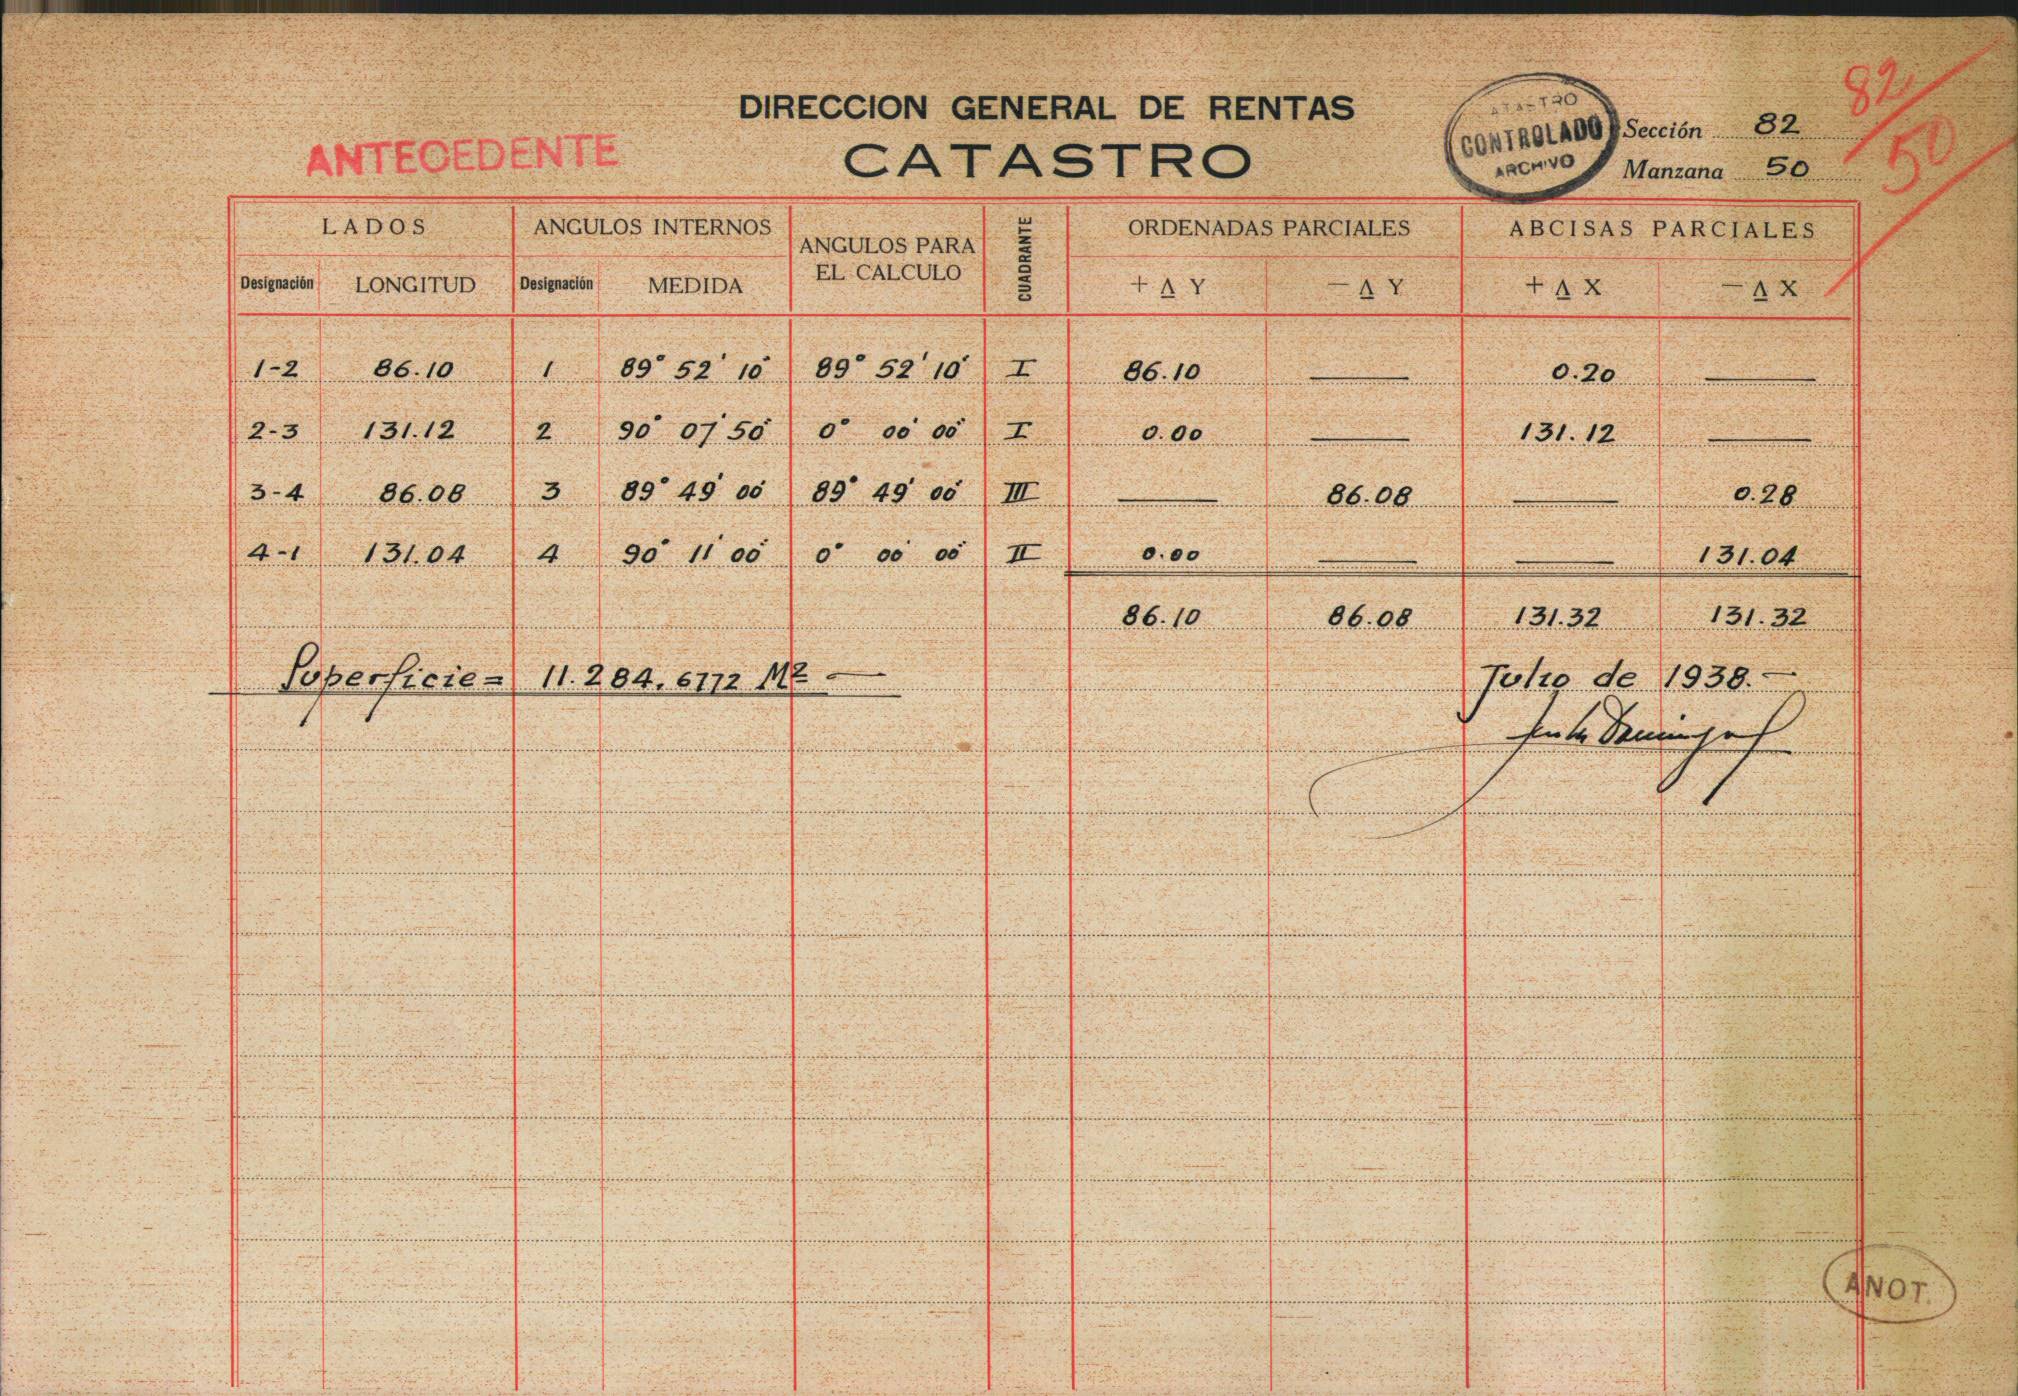 82
50
DIRECCION GENERAL DE RENTAS
CATASTRO
ANTECEDENTE
CONTROLADO
ARCHIVO
Sección 82
Manzana 50
LADOS ANGULOS INTERNOS ANGULOS PARA EL CALCULO CUADRANTE ORDENADAS PARCIALES ABCISAS PARCIALES
Designación LONGITUD Designación MEDIDA + Δ Y − Δ Y + Δ X − Δ X
1-2 86.10 1 89° 52' 10" 89° 52' 10" I 86.10 — 0.20 —
2-3 131.12 2 90° 07' 50" 0° 00' 00" I 0.00 — 131.12 —
3-4 86.08 3 89° 49' 00" 89° 49' 00" III — 86.08 — 0.28
4-1 131.04 4 90° 11' 00" 0° 00' 00" II 0.00 — — 131.04
86.10 86.08 131.32 131.32
Superficie = 11.284,6772 M² —
Julio de 1938.—
ANOT.